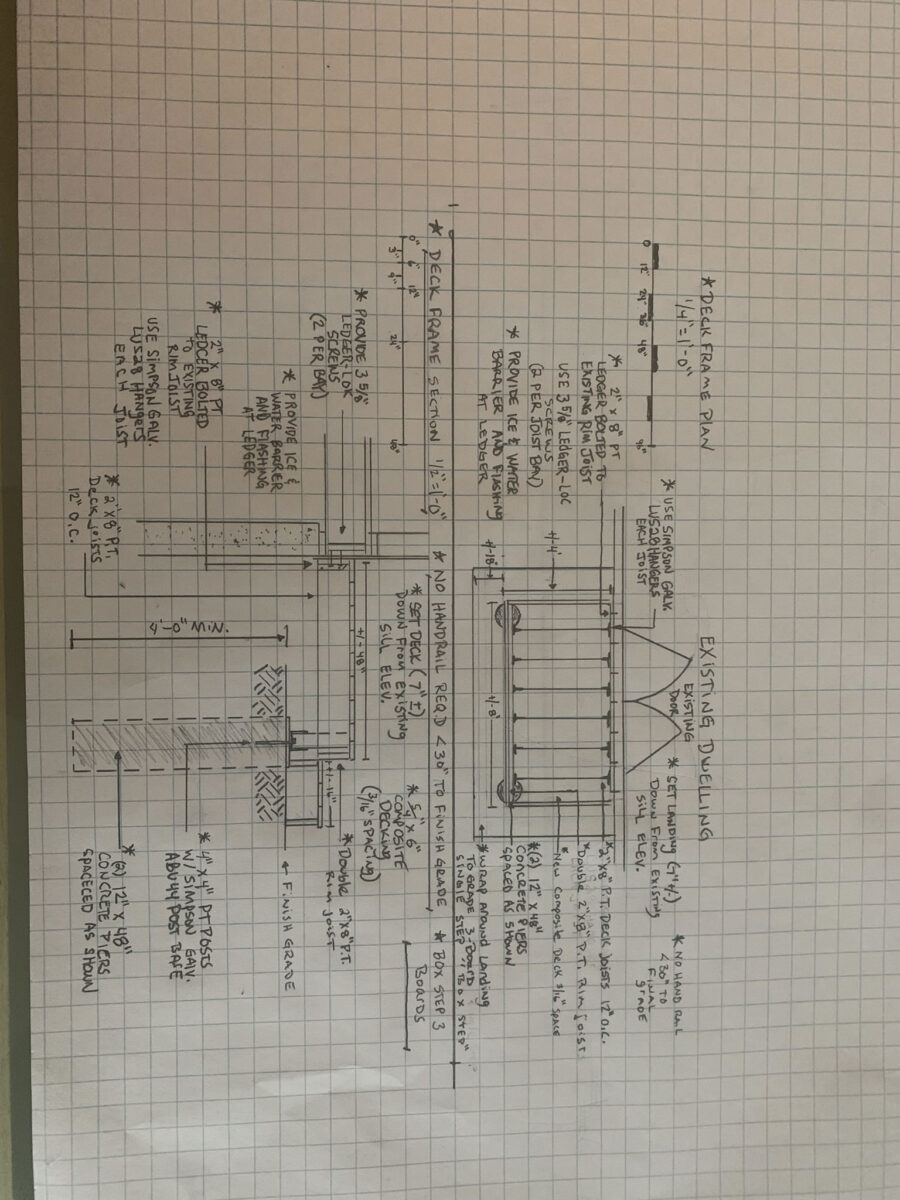 * DECK FRAME PLAN
1/4" = 1'-0"
0 12" 24" 36" 48" 96"
EXISTING DWELLING
EXISTING
DOOR
EXISTING
* USE SIMPSON GALV.
LUS28 HANGERS
EACH JOIST
* SET LANDING (7" +/-)
DOWN FROM EXISTING
SILL ELEV.
* NO HAND RAIL
<30" TO
FINAL
GRADE
* 2" X 8" PT
LEDGER BOLTED TO
EXISTING RIM JOIST
USE 3 5/8" LEDGER-LOC
SCREWS
(2 PER JOIST BAY)
* PROVIDE ICE & WATER
BARRIER AND FLASHING
AT LEDGER
+/-4'
+/-18"
+/-8'
* 2"X8" P.T. DECK JOISTS 12" O.C.
* DOUBLE 2"X8" P.T. RIM JOIST
* New Composite Deck 3/16" SPACE
* (2) 12" X 48"
CONCRETE PIERS
SPACED AS SHOWN
* WRAP AROUND LANDING
TO GRADE 3-BOARD
SINGLE STEP "BOX STEP"
* DECK FRAME SECTION 1/2"=1'-0"
* NO HANDRAIL REQ.D <30" TO FINISH GRADE,
* BOX STEP 3
Boards
0" 3" 6" 9" 12" 24" 48"
* SET DECK (7" ±)
DOWN FROM EXISTING
SILL ELEV.
* 5/4" X 6"
COMPOSITE
DECKING
(3/16" SPACING)
* PROVIDE 3 5/8"
LEDGER-LOK
SCREWS
(2 PER BAY)
* PROVIDE ICE &
WATER BARRIER
AND FLASHING
AT LEDGER
* 2" X 8" PT
LEDGER BOLTED
TO EXISTING
RIM JOIST
USE SIMPSON GALV.
LUS28 HANGERS
EACH JOIST
* 2"X8" P.T.
Deck joists
12" O.C.
+/-48"
+/-16"
4'-0" MIN.
* DOUBLE 2"X8" P.T.
RIM JOIST
FINISH GRADE
* 4"X4" PT POSTS
W/ SIMPSON GALV.
ABU44 POST BASE
* (2) 12" X 48"
CONCRETE PIERS
SPACECED AS SHOWN